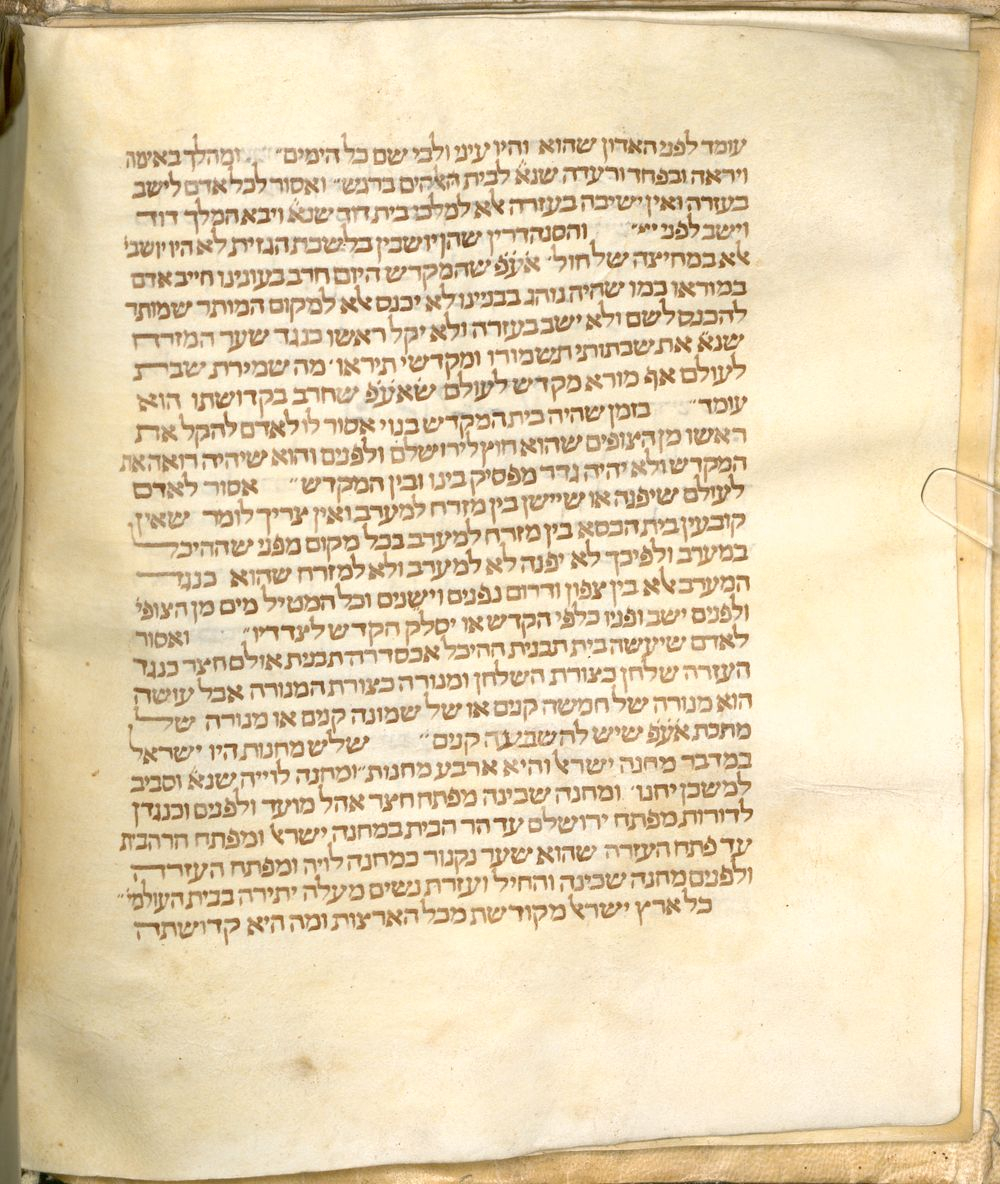 עומד לפני האדון שהוא והיו עיני ולבי שם כל הימים״ ומהלך באימה
ויראה ובפחד ורעדה שנא׳ לבית אלהים ברגש״ ואסור לכל אדם לישב
בעזרה ואין ישיבה בעזרה אלא למלכי בית דוד שנא׳ ויבא המלך דוד
וישב לפני ייי״ והסנהדרין שהן יושבין בלשכת הגזית לא היו יושבי׳
אלא במחיצה של חול׳ אע״פ שהמקדש היום חרב בעונינו חייב אדם
במוראו כמו שהיה נוהג בבניינו לא יכנס אלא למקום המותר שמותר
להכנס לשם ולא ישב בעזרה ולא יקל ראשו כנגד שער המזרח
שנא׳ את שבתותי תשמורו ומקדשי תיראו׳ מה שמירת שבת
לעולם אף מורא מקדש לעולם שאע״פ שחרב בקדושתו הוא
עומד״ בזמן שהיה בית המקדש בנוי אסור לו לאדם להקל את
ראשו מן הצופים שהוא חוץ לירושלם ולפנים והוא שיהיה רואה את
המקדש ולא יהיה גדר מפסיק בינו ובין המקדש״ אסור לאדם
לעולם שיפנה או שיישן בין מזרח למערב ואין צריך לומר שאין
קובעין בית הכסא בין מזרח למערב בכל מקום מפני שההיכל
במערב ולפיכך לא יפנה לא למערב ולא למזרח שהוא כנגד
המערב אלא בין צפון ודרום נפנים וישנים וכל המטיל מים מן הצופי׳
ולפנים ישב ופניו כלפי הקדש או יסלק הקדש לצדדיו״ ואסור
לאדם שיעשה בית תבנית ההיכל אכסדרה תבנית אולם חצר כנגד
העזרה שלחן בצורת השלחן ומנורה בצורת המנורה אבל עושה
הוא מנורה של חמשה קנים או של שמונה קנים או מנורה של
מתכת אע״פ שיש לה שבעה קנים״ שלש מחנות היו ישראל
במדבר מחנה ישראל והיא ארבע מחנות״ ומחנה לוייה שנא׳ וסביב
למשכן יחנו׳ ומחנה שכינה מפתח חצר אהל מועד ולפנים וכנגדן
לדורות מפתח ירושלם עד הר הבית במחנה ישראל ומפתח הר הבית
עד פתח העזרה שהוא שער נקנור כמחנה לויה ומפתח העזרה
ולפנים מחנה שכינה והחיל ועזרת נשים מעלה יתירה בבית העולמי׳״
כל ארץ ישראל מקודשת מכל הארצות ומה היא קדושתה